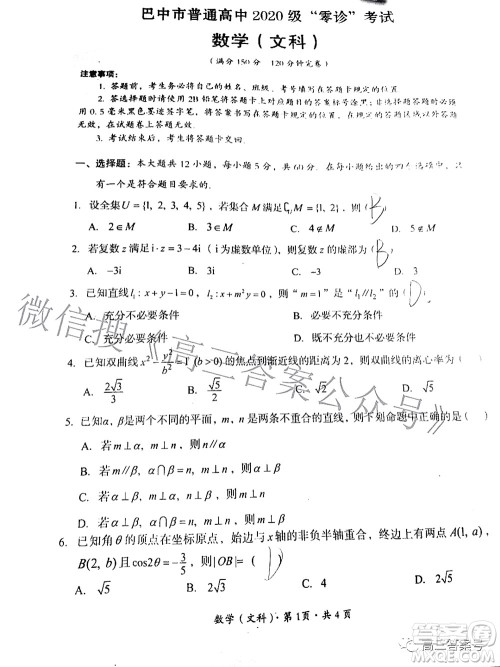 巴中市普通高中 2020 级“零诊”考试
数学(文科)
(满分 150 分 120分钟完卷)
注意事项:
1. 答题前,考生务必将自己的姓名、班级、考号填写在答题卡规定的位置.
2. 答选择题时请使用 2B 铅笔将答题卡上对应题目的答案标号涂黑;非选择题答题时必须用
0.5 毫米黑色墨迹签字笔,将答案书写在答题卡规定的位置,在规定的答题区域以外答题无效,
在试题卷、草稿纸上答题无效.
3. 考试结束后,考生将答题卡交回.
一、选择题:本大题共 12 小题,每小题 5 分,共 60 分.在每小题给出的四个选项中,只有
一个是符合题目要求的.
1. 设全集U={1, 2, 3, 4, 5},若集合M满足∁UM={1, 2},则( B )
A. 2∈M B. 3∉M C. 4∉M D. 5∈M
2. 若复数 z 满足 i·z=3−4i(i为虚数单位),则 z 的虚部为( )
A. −3i B. 3i C. −3 D. 3
3. 已知直线l₁: x+y−1=0,l₂: x+m²y=0,则“m=1”是“l₁∥l₂”的( D )
A. 充分不必要条件 B. 必要不充分条件
C. 充要条件 D. 既不充分也不必要条件
4. 已知双曲线x²−y²/b²=1 (b>0)的焦点到渐近线的距离为 2,则双曲线的离心率为( )
A. 2√3/3 B. √2 C. √3 D. √5
5. 已知α, β是两个不同的平面,m, n是两条不重合的直线,则下列命题中正确的是( )
A. 若m⊥α, m⊥n,则n∥α
B. 若m∥α, α∩β=n,则m∥n
C. 若α⊥β, α∩β=n, m⊥n,则m⊥β
D. 若α⊥β, m⊥α, n⊥β,则m⊥n
6. 已知角θ的顶点在坐标原点,始边与x轴的非负半轴重合,终边上有两点A(1, a),
B(2, b)且cos2θ=−3/5,则|OB|=( )
A. √5 B. 2√3 C. 4 D. 2√5
数学(文科)·第1页·共4页
微信搜《高三答案公众号》
高三答案号